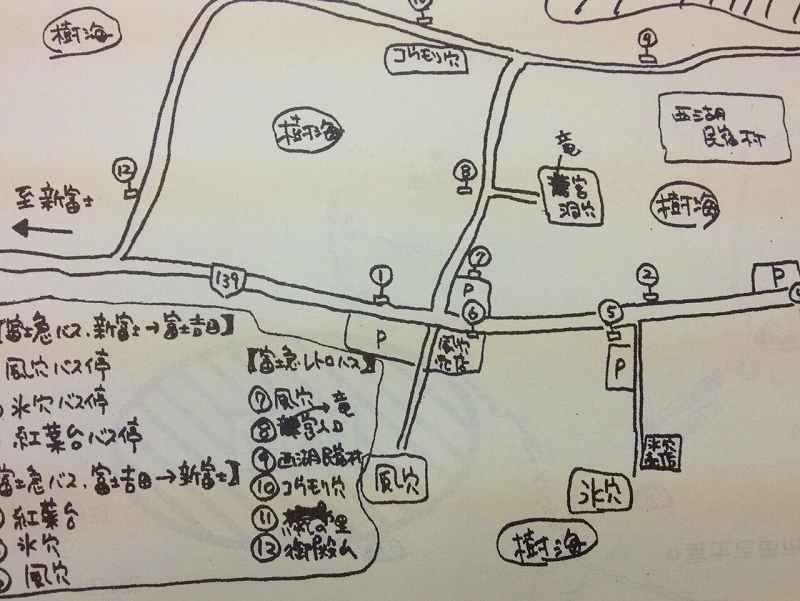 樹海
コウモリ穴
⑨
西湖
民宿村
樹海
竜
宮
洞穴
⑫
⑧
樹海
至新富士
139
①
⑦
P
②
P
⑥
⑤
P
風穴
売店
P
氷穴
売店
風穴
氷穴
樹海
【富士急バス、新富士→富士吉田】
風穴バス停
氷穴バス停
紅葉台バス停
富士急バス、富士吉田→新富士】
紅葉台
氷穴
風穴
【富士急レトロバス】
⑦風穴
⑧竜宮入口
⑨西湖民宿村
⑩コウモリ穴
⑪の里
⑫御殿ム